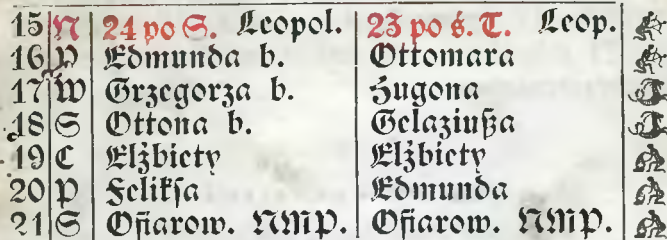 15 N 24 po S. Leopol. 23 po ś. T. Leop.
16 P Edmunda b. Ottomara
17 W Grzegorza b. Hugona
18 S Ottona b. Gelaziußa
19 C Elżbiety Elżbiety
20 P Felikſa Edmunda
21 S Ofiarow. NMP. Ofiarow. NMP.